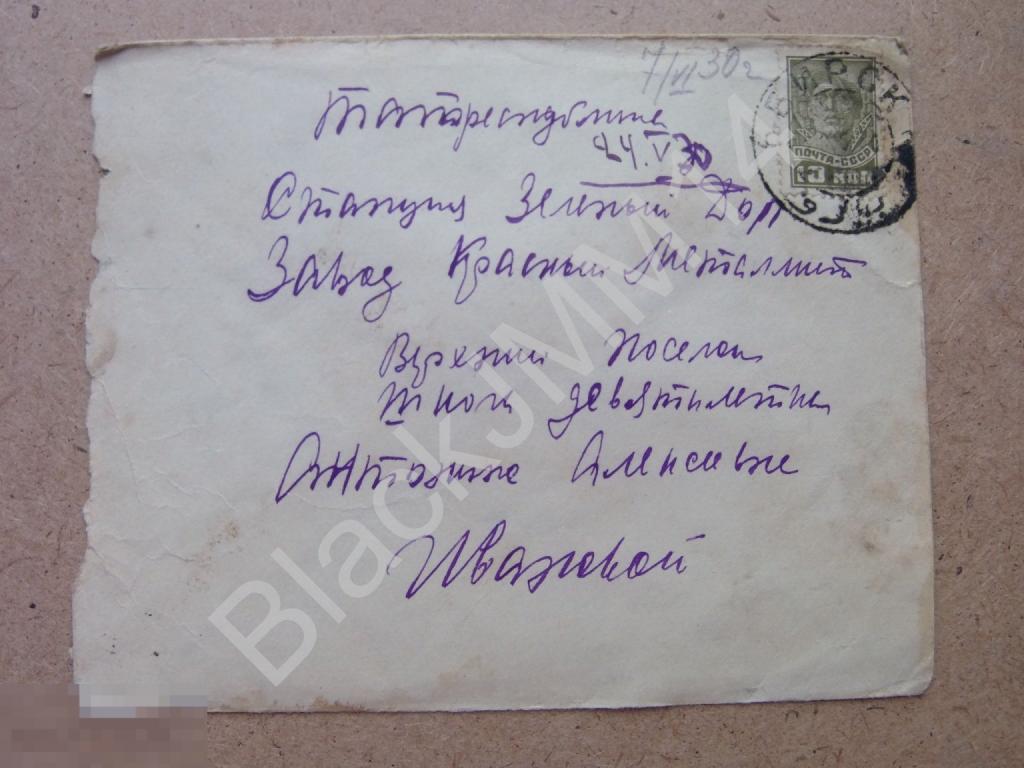 7/VI 30г
Татреспублика
24.V 30
Станция Зеленый Дол
Завод Красный Металлист
Верхний Поселок
Школа девятилетка
Антонине Алексеевне
Ивановой
ПОЧТА-СССР
15 КОП
BlackJMM 74